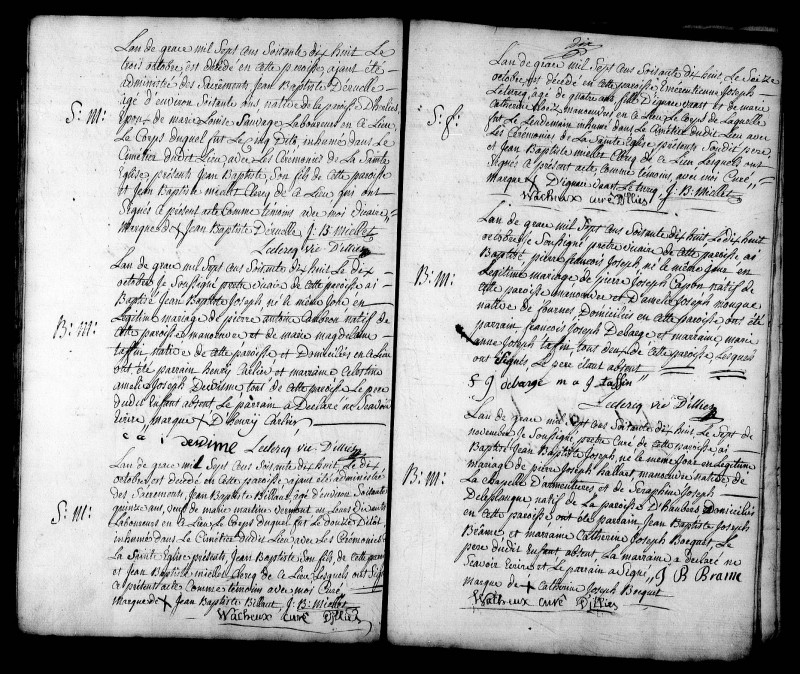 Lan de grace mil Sept cens Soixante dix huit Le
trois octobre est décédé en cette paroisse ajant été
administré des Sacrêments Jean Baptiste Déruelle
agé d'environ Soixante ans native de la paroisse
S: M: Epoux de marie Louise Sauvage Laboureur en ce Lieu,
Le Corps duquel fut Le cinq Dito, inhumé dans Le
Cimetière dudit Lieu avec Les Cérémonies de La Sainte
Eglise présents Jean Baptiste Son fils de cette paroisse
et Jean Baptiste miellet Clercq de ce Lieu qui ont
Signés ce présent acte Comme témoins avec moi vicaire,
Marque de X Jean Baptiste Déruelle J: B: Miellet
Leclercq vic D'illies
Lan de grace mil Sept cens Soixante dix huit Le dix
octobre je Soussigné pretre vicaire de cette paroisse ai
Baptisé Jean Baptiste Joseph né le même Jour en
Légitime mariage de pierre antoine natif de
B: M: cette paroisse manoeuvre et de marie magdelaine
taffin native de cette paroisse et Domiciliés en ce Lieu
ont été parrain henry Carlier et marraine Celestine
amelie Joseph tous de cette paroisse Le pere
dudit Enfant absent Le parrain a Declaré ne Scavoir
Ecrire, marque X D'henry Carlier
Leclercq vic D'illies
Lan de grace mil Sept cens Soixante dix huit, Le dix
octobre est décédé en cette paroisse ajant été administré
des Sacrements, Jean Baptiste Billaut, agé d'environ Soixante
quinze ans, veuf de marie martine
S: M: Laboureur en ce Lieu Le Corps duquel fut Le douze Ditot,
inhumé dans Le Cimetière dudit Lieu avec Les Cérémonies de
La Sainte Eglise présents Jean Baptiste Son fils, de cette
et Jean Baptiste miellet Clercq de ce Lieu Lesquels ont Signé
ce présent acte Comme témoins avec moi Curé
Marque de X Jean Baptiste Billaut, J: B: Miellet
Wacheux curé D'illies
dix
Lan de grace mil Sept cens Soixante dix huit, Le Seize
octobre est décédé en cette paroisse Emérentienne Joseph
Leturcq, agé de quatre ans fille D'ignace vaast et de marie
S: f: Catherine manoeuvres en ce Lieu Le Corps de Laquelle
fut Le Lendemain inhumé dans Le Cimetière dudit Lieu avec
Les Cérémonies de La Sainte Eglise, présents Soudit pere
et Jean Baptiste miellet Clercq de ce Lieu Lesquels ont
Signés ce présent acte, Comme témoins, avec moi Curé
Marque X D'ignace vaast Leturcq J: B: Miellet
Wacheux curé D'illies
Lan de grace mil Sept cens Soixante dix huit Le dix huit
octobre je Soussigné pretre vicaire de cette paroisse ai
Baptisé, pierre francois Joseph, né le même Jour en
B: M: Légitime mariage de pierre Joseph natif de
cette paroisse manoeuvre et D'amelie Joseph
native de fournes Domiciliés en cette paroisse ont été
parrain francois Joseph Debarge et marraine marie
anne Joseph taffin, tous deux de cette paroisse, Lesquels
ont Signés, Le pere étant absent
f J debarge m a J taffin
Leclercq vic D'illies
Lan de grace mil Sept cens Soixante dix huit, Le Sept de
novembre je Soussigné pretre Curé de cette paroisse ai
Baptisé Jean Baptiste Joseph, né le même Jour en Légitime
mariage de pierre Joseph hallart manoeuvre native de
B: M: La chapelle D'armentieres et de Seraphine Joseph
Deleplanque natif de La paroisse D'haubers Domiciliés
en cette paroisse ont été parrain Jean Baptiste Joseph
Brâme et marraine Catherine Joseph Bocquet, Le
pere dudit Enfant absent La marraine a declaré ne
Scavoir Ecrire et Le parrain a Signé, J B Brame
marque de X Catherine Joseph Bocquet
Wacheux curé D'illies